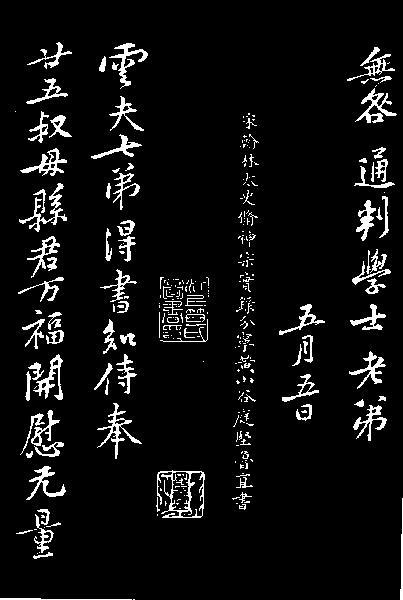 無咎通判學士老弟
五月五日
宋翰林太史脩神宗實錄分寧黃山谷庭堅魯直書
雲夫七弟得書知侍奉
廿五叔母縣君万福開慰无量